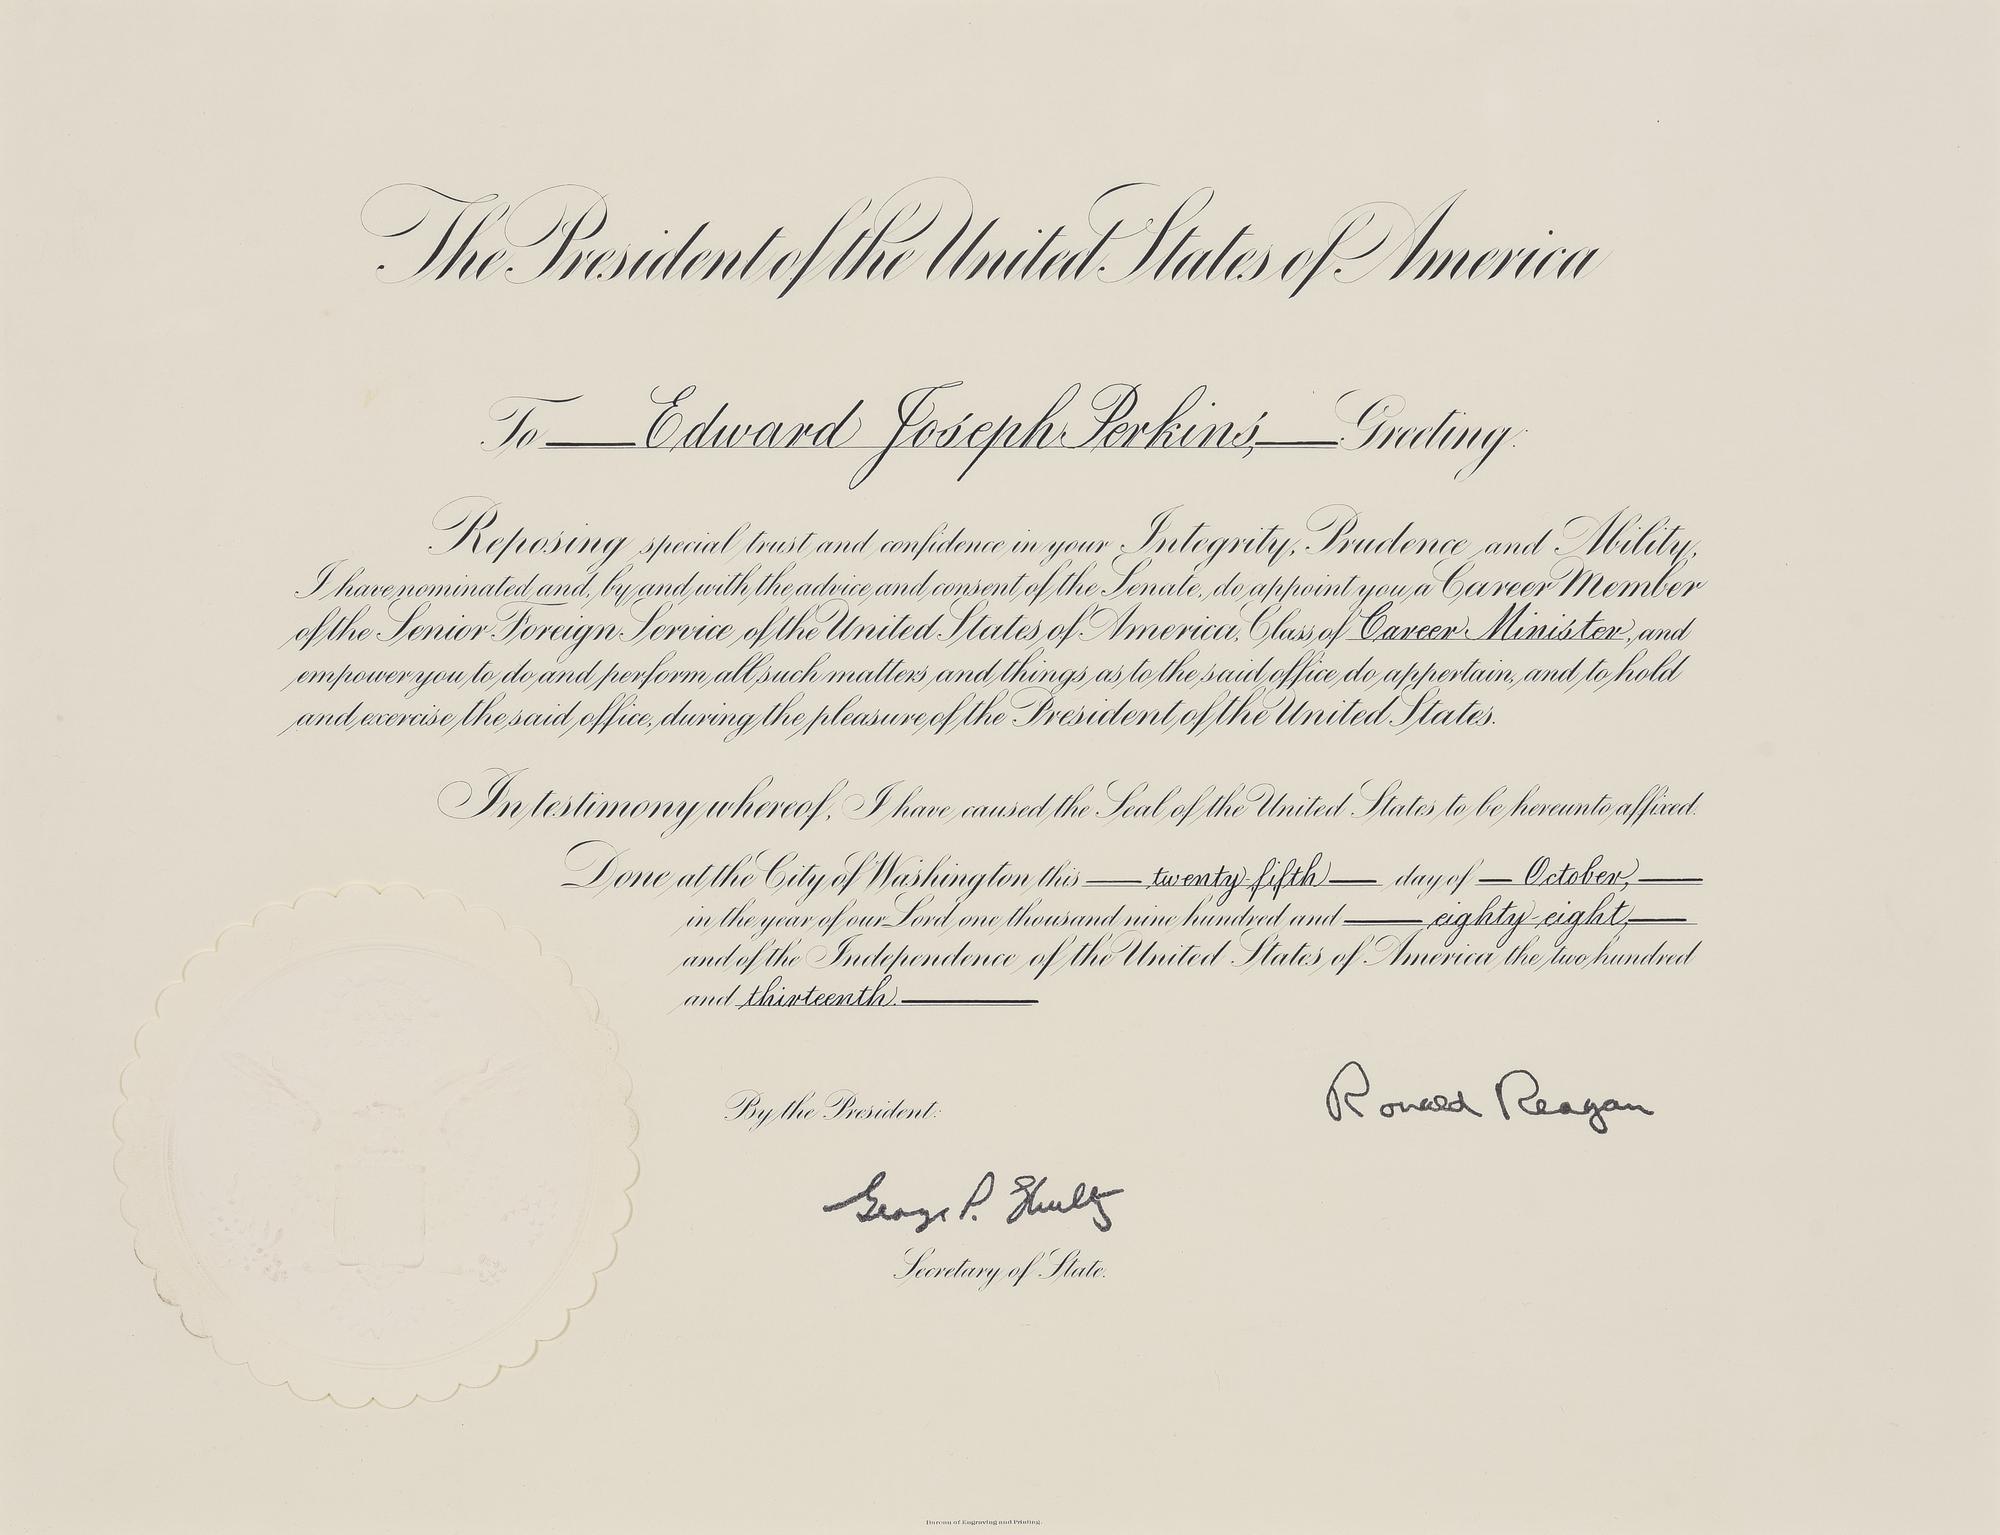 The President of the United States of America
To Edward Joseph Perkins, Greeting:
Reposing special trust and confidence in your Integrity, Prudence and Ability,
I have nominated and, by and with the advice and consent of the Senate, do appoint you a Career Member
of the Senior Foreign Service of the United States of America, Class of Career Minister, and
empower you to do and perform all such matters and things as to the said office do appertain, and to hold
and exercise the said office, during the pleasure of the President of the United States.
In testimony whereof, I have caused the Seal of the United States to be hereunto affixed.
Done at the City of Washington this twenty-fifth day of October,
in the year of our Lord one thousand nine hundred and eighty-eight,
and of the Independence of the United States of America the two hundred
and thirteenth.
Ronald Reagan
By the President:
George P. Shultz
Secretary of State.
Bureau of Engraving and Printing.